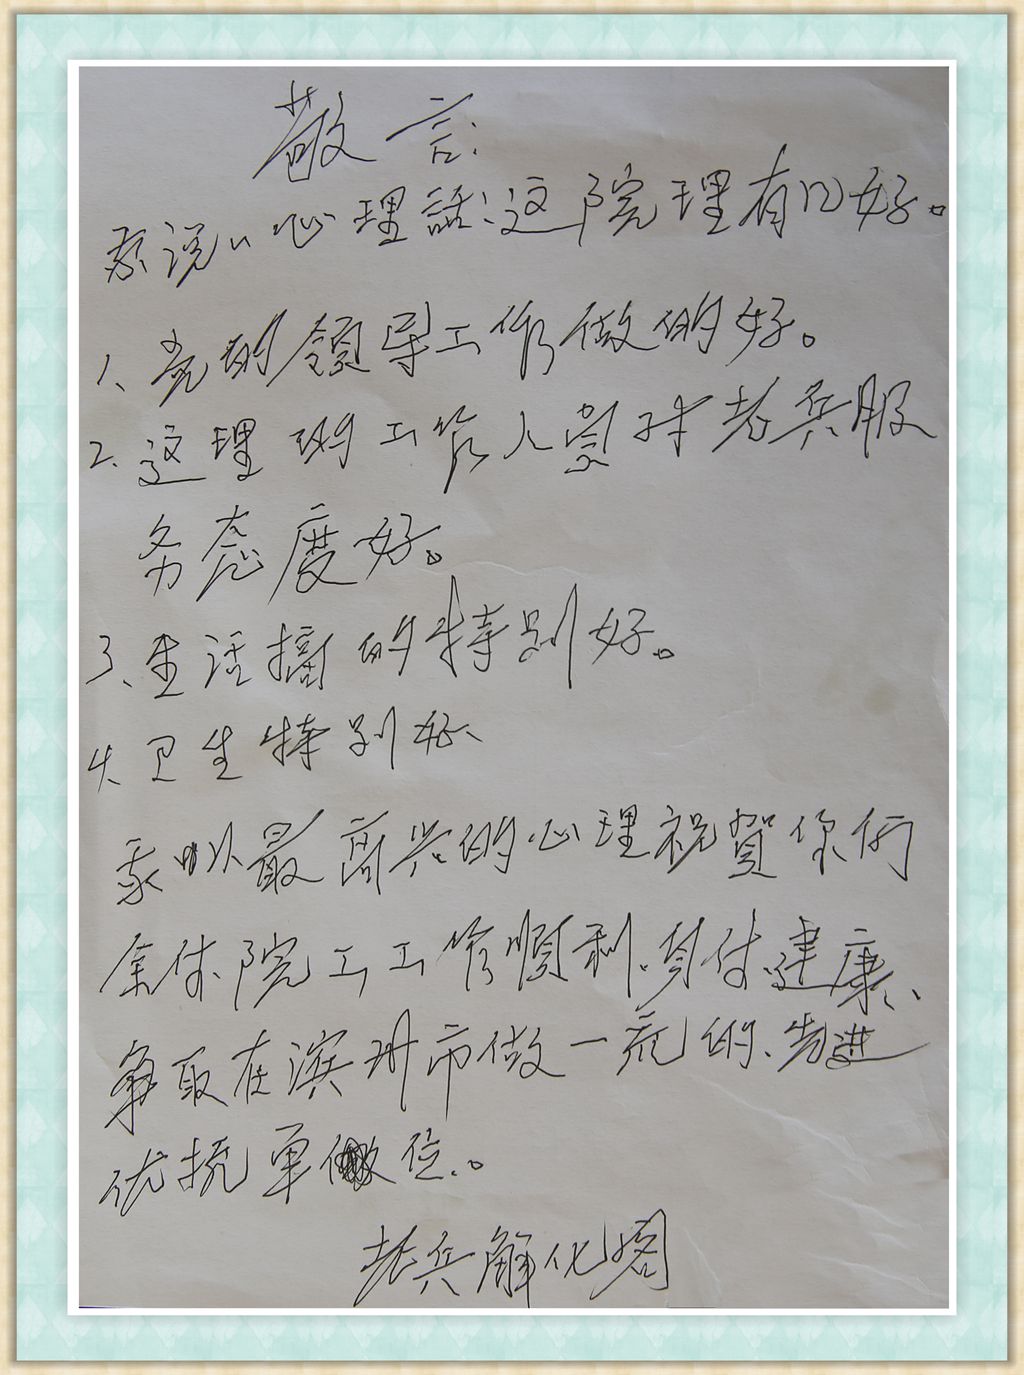 敬言:
我说心理話:这院理有四好。
1、党的领导工作做的好。
2、这理的工作人员对老兵服
务态度好。
3、生活搞的特别好。
4、卫生特别好、
我以最高兴的心理祝賀你们
全体院工工作顺利、身体健康、
争取在滨州市做一流的、先进
优抚单位。
老兵解化